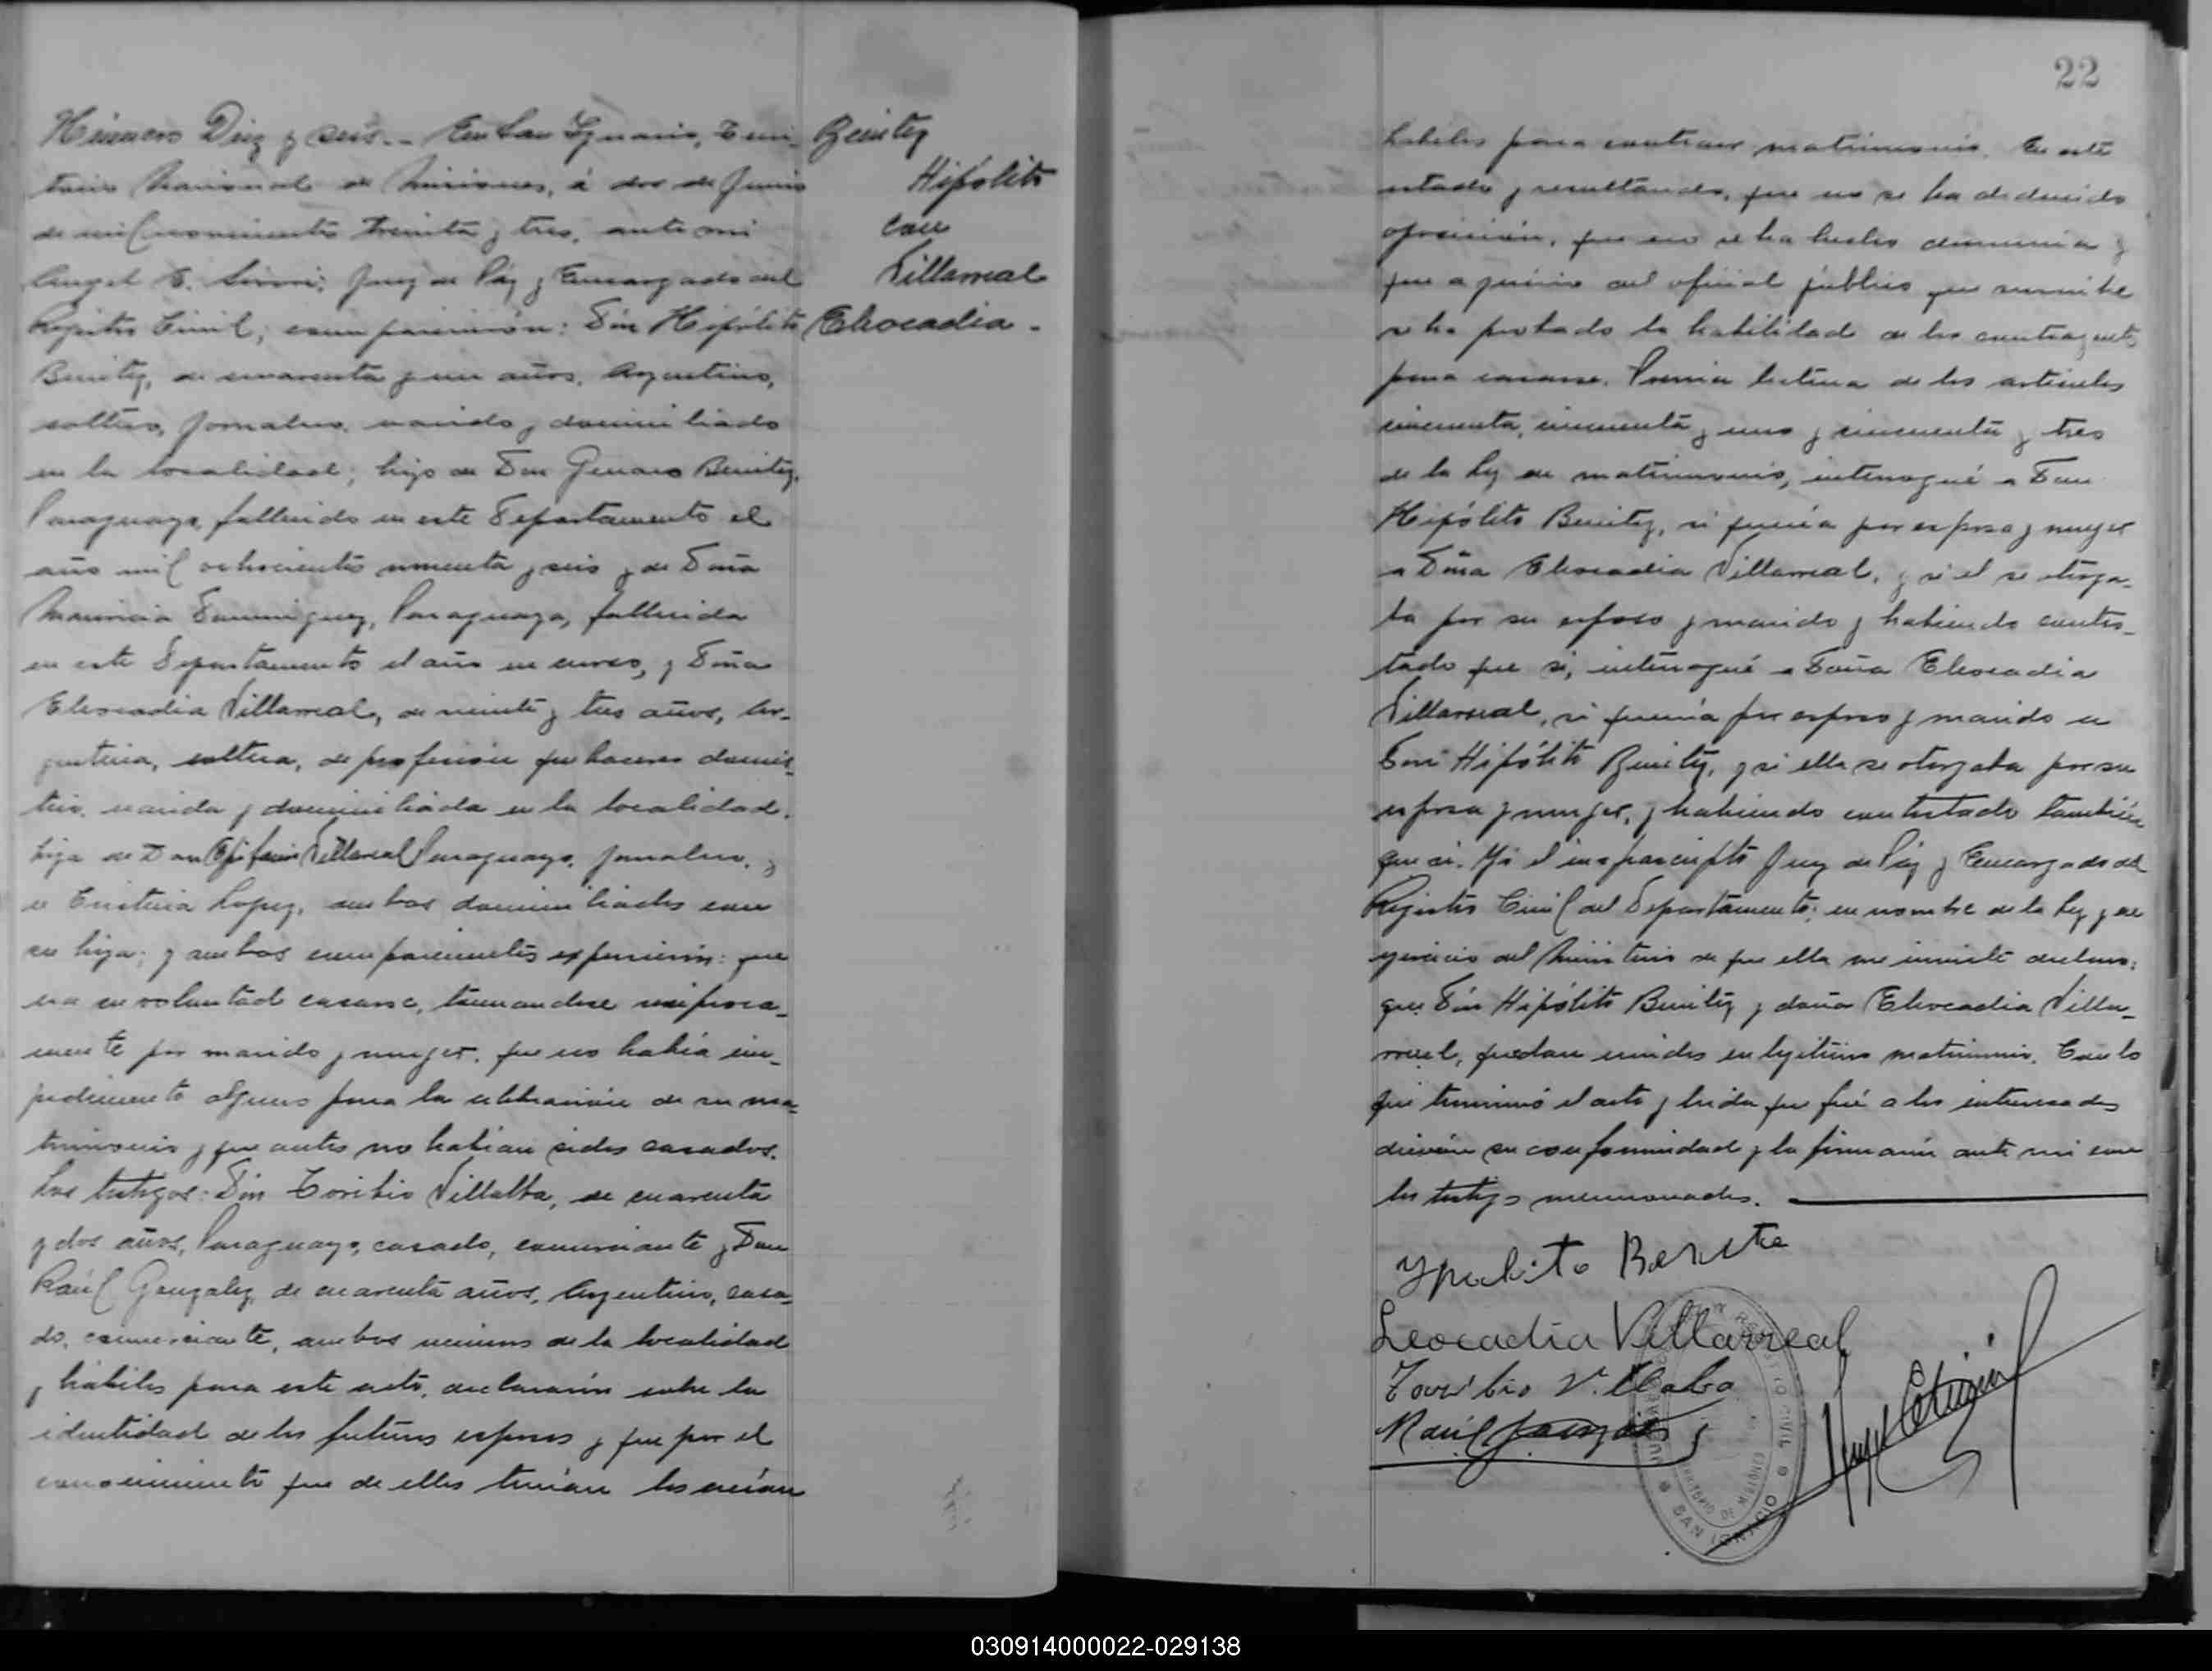 Número Diez y seis.- En San Ygnacio, Terri-
torio Nacional de Misiones, á dos de Junio
de mil novecientos treinta y tres, ante mi
Angel E. Juez de Paz y Encargado del
Registro Civil; comparecieron: Dón Hipólito
Benitez, de cuarenta y un años, Argentino,
soltero, Jornalero, nacido y domiciliado
en la localidad; hijo de Don Genaro Benitez,
Paraguayo, fallecido en este Departamento el
año mil ochocientos noventa y seis y de Doña
Mauricia Dominguez, Paraguaya, fallecida
en este Departamento el año en curso, y Doña
Eleocadia Villarreal, de veinte y tres años, Ar-
gentina, soltera, de profesión quehaceres domés-
tico, nacida y domiciliada en la localidad,
hija de Don Epifanio Villareal Paraguayo, Jornalero, y
de Cristina Lopez, ambos domiciliados con
su hija; y ambos comparecientes expusieron: que
era su voluntad casarse, tomandose reciproca-
mente por marido y mujer, que no había im-
pedimento alguno para la celebración de su ma-
trimonio y que antes no habían sidos casados.
Los testigos: Dón Toribio Villalba, de cuarenta
y dos años, Paraguayo, casado, comerciante y Don
Raúl Gonzalez, de cuarenta años, Argentino, casa-
do, comerciante, ambos vecinos de la localidad
y hábiles para este acto, declararón sobre la
identidad de los futuros esposos y que por el
conocimiento que de ellos tenían los creían
Benitez
Hipólito
con
Villarreal
Eleocadia.-
22
habiles para contraer matrimonio. En este
estado y resultando, que no se ha deducido
oposición, que no se ha hecho denuncia y
que a juicio del oficial público que suscribe
se ha probado la habilidad de los contrayentes
para casarse. Previa lectura de los articulos
cincuenta, cincuenta y uno y cincuenta y tres
de la Ley de matrimonio, interrogué a Don
Hipólito Benitez, si quería por esposa y mujer
a Doña Eleocadia Villarreal, y si el se otorga-
ba por su esposo y marido y habiendo contes-
tado que si, interrogué a Doña Eleocadia
Villarreal, si quería por esposo y marido a
Don Hipólito Benitez, y si ella se otorgaba por su
esposa y mujer, y habiendo contestado también
que si. Yo el infrascripto Juez de Páz y Encargado del
Registro Civil del Departamento; en nombre de la Ley y en
ejercicio del Ministerio de que ella me inviste declaro;
que Dón Hipólito Benitez y doña Eleocadia Villa-
rreal, quedan unidos en legitimo matrimonio. Con lo
que terminó el acto y leida que fué a los interesados
dieron su conformidad y la firmarón ante mi con
los testigos mencionados.
Ypolito
Leocadia Villarreal
Toribio Villalba
Raúl Gonzalez
REGISTRO CIVIL
SAN IGNACIO
030914000022-029138